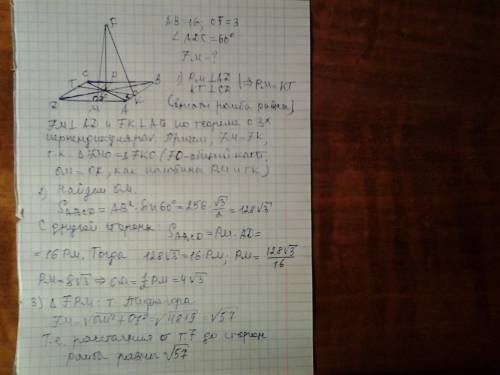 AB=16, OF=3
∠ADC=60°
FM-?
F
C
P
B
T
D
M
A
K
1) PM⊥AD
KT⊥CD
|⇒ PM=KT
(высоты ромба равны)
FM⊥AD и FK⊥AB по теореме о 3х
перпендикулярах. Причем, FM=FK,
т.к. ΔFMO=ΔFKO (FO-общий катет,
OM=OK, как половины PM и TK)
2) Найдем OM.
S_ABCD = AB²·sin60°=256·√3/2=128√3
С другой стороны: S_ABCD=PM·AD=
=16PM. Тогда 128√3=16PM; PM=128√3/16
PM=8√3 ⇒ OM=½PM=4√3
3) Δ FPM: т. Пифагора:
FM=√OM²+OF²=√48+9=√57
Т.е. расстояния от т.F до сторон
ромба равны √57